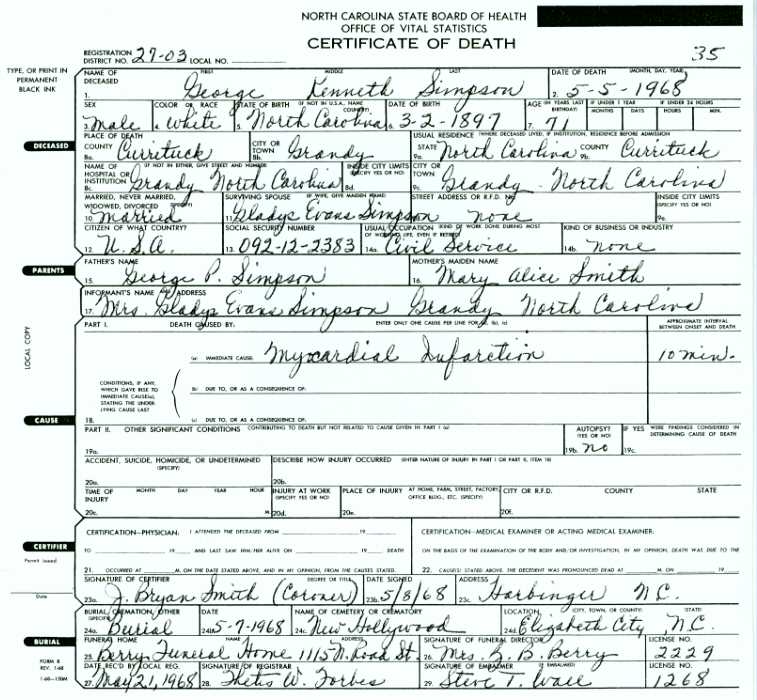 NORTH CAROLINA STATE BOARD OF HEALTH
OFFICE OF VITAL STATISTICS
CERTIFICATE OF DEATH
REGISTRATION DISTRICT NO. 27-03 LOCAL NO. 35
TYPE, OR PRINT IN PERMANENT BLACK INK
NAME OF DECEASED FIRST MIDDLE LAST DATE OF DEATH (MONTH, DAY, YEAR)
1. George Kenneth Simpson 2. 5-5-1968
SEX COLOR OR RACE STATE OF BIRTH (IF NOT IN U.S.A., NAME COUNTRY) DATE OF BIRTH AGE (IN YEARS LAST BIRTHDAY) IF UNDER 1 YEAR MONTHS DAYS IF UNDER 24 HOURS HOURS MIN.
3. Male 4. White 5. North Carolina 6. 3-2-1897 7. 71
DECEASED
PLACE OF DEATH USUAL RESIDENCE (WHERE DECEASED LIVED, IF INSTITUTION, RESIDENCE BEFORE ADMISSION)
COUNTY 8a. Currituck CITY OR TOWN 8b. Grandy STATE 9a. North Carolina COUNTY 9b. Currituck
NAME OF (IF NOT IN EITHER, GIVE STREET AND NUMBER) HOSPITAL OR INSTITUTION INSIDE CITY LIMITS (SPECIFY YES OR NO) CITY OR TOWN
8c. Grandy North Carolina 8d. 9c. Grandy North Carolina
MARRIED, NEVER MARRIED, WIDOWED, DIVORCED (SPECIFY) SURVIVING SPOUSE (IF WIFE, GIVE MAIDEN NAME) STREET ADDRESS OR R.F.D. NO. INSIDE CITY LIMITS (SPECIFY YES OR NO)
10. Married 11. Gladys Evans Simpson none 9e.
CITIZEN OF WHAT COUNTRY? SOCIAL SECURITY NUMBER USUAL OCCUPATION (KIND OF WORK DONE DURING MOST OF WORKING LIFE, EVEN IF RETIRED) KIND OF BUSINESS OR INDUSTRY
12. U.S.A. 13. 092-12-2383 14a. Civil Service 14b. none
PARENTS
FATHER'S NAME MOTHER'S MAIDEN NAME
15. George P. Simpson 16. Mary Alice Smith
INFORMANT'S NAME AND ADDRESS
17. Mrs. Gladys Evans Simpson Grandy North Carolina
LOCAL COPY
PART I. DEATH CAUSED BY: ENTER ONLY ONE CAUSE PER LINE FOR (a), (b), (c) APPROXIMATE INTERVAL BETWEEN ONSET AND DEATH
(a) IMMEDIATE CAUSE: Myocardial Infarction 10 min.
CONDITIONS, IF ANY, WHICH GAVE RISE TO IMMEDIATE CAUSE(a), STATING THE UNDERLYING CAUSE LAST
(b) DUE TO, OR AS A CONSEQUENCE OF:
CAUSE
18. (c) DUE TO, OR AS A CONSEQUENCE OF:
PART II. OTHER SIGNIFICANT CONDITIONS CONTRIBUTING TO DEATH BUT NOT RELATED TO CAUSE GIVEN IN PART I (a) AUTOPSY? (YES OR NO) IF YES WERE FINDINGS CONSIDERED IN DETERMINING CAUSE OF DEATH
19a. 19b. No 19c.
ACCIDENT, SUICIDE, HOMICIDE, OR UNDETERMINED (SPECIFY) DESCRIBE HOW INJURY OCCURRED (ENTER NATURE OF INJURY IN PART I OR PART II, ITEM 18)
20a. 20b.
TIME OF INJURY MONTH DAY YEAR HOUR INJURY AT WORK (SPECIFY YES OR NO) PLACE OF INJURY AT HOME, FARM, STREET, FACTORY, OFFICE BLDG., ETC. (SPECIFY) CITY OR R.F.D. COUNTY STATE
20c. M. 20d. 20e. 20f.
CERTIFIER
Permit Issued
Date
CERTIFICATION—PHYSICIAN: I ATTENDED THE DECEASED FROM 19 CERTIFICATION—MEDICAL EXAMINER OR ACTING MEDICAL EXAMINER:
TO 19 AND LAST SAW HIM/HER ALIVE ON 19 DEATH ON THE BASIS OF THE EXAMINATION OF THE BODY AND/OR INVESTIGATION, IN MY OPINION, DEATH WAS DUE TO THE
21. OCCURRED AT M. ON THE DATE STATED ABOVE, AND IN MY OPINION, FROM THE CAUSES STATED. 22. CAUSE(S) STATED ABOVE. THE DECEDENT WAS PRONOUNCED DEAD AT M. ON 19
SIGNATURE OF CERTIFIER DEGREE OR TITLE DATE SIGNED ADDRESS
23a. J. Bryan Smith (Coroner) 23b. 5/8/68 23c. Harbinger N.C.
BURIAL, CREMATION, OTHER (SPECIFY) DATE NAME OF CEMETERY OR CREMATORY LOCATION (CITY, TOWN, OR COUNTY) STATE
24a. Burial 24b. 5-7-1968 24c. New Hollywood 24d. Elizabeth City N.C.
BURIAL
FUNERAL HOME NAME ADDRESS SIGNATURE OF FUNERAL DIRECTOR LICENSE NO.
25. Berry Funeral Home 1115 N. Road St. 26. Mrs. Z. B. Berry 2229
DATE REC'D BY LOCAL REG. SIGNATURE OF REGISTRAR SIGNATURE OF EMBALMER (IF EMBALMED) LICENSE NO.
27. May 21, 1968 28. Thetis W. Forbes 29. Steve T. Wall 1268
FORM 8
REV. 1-68